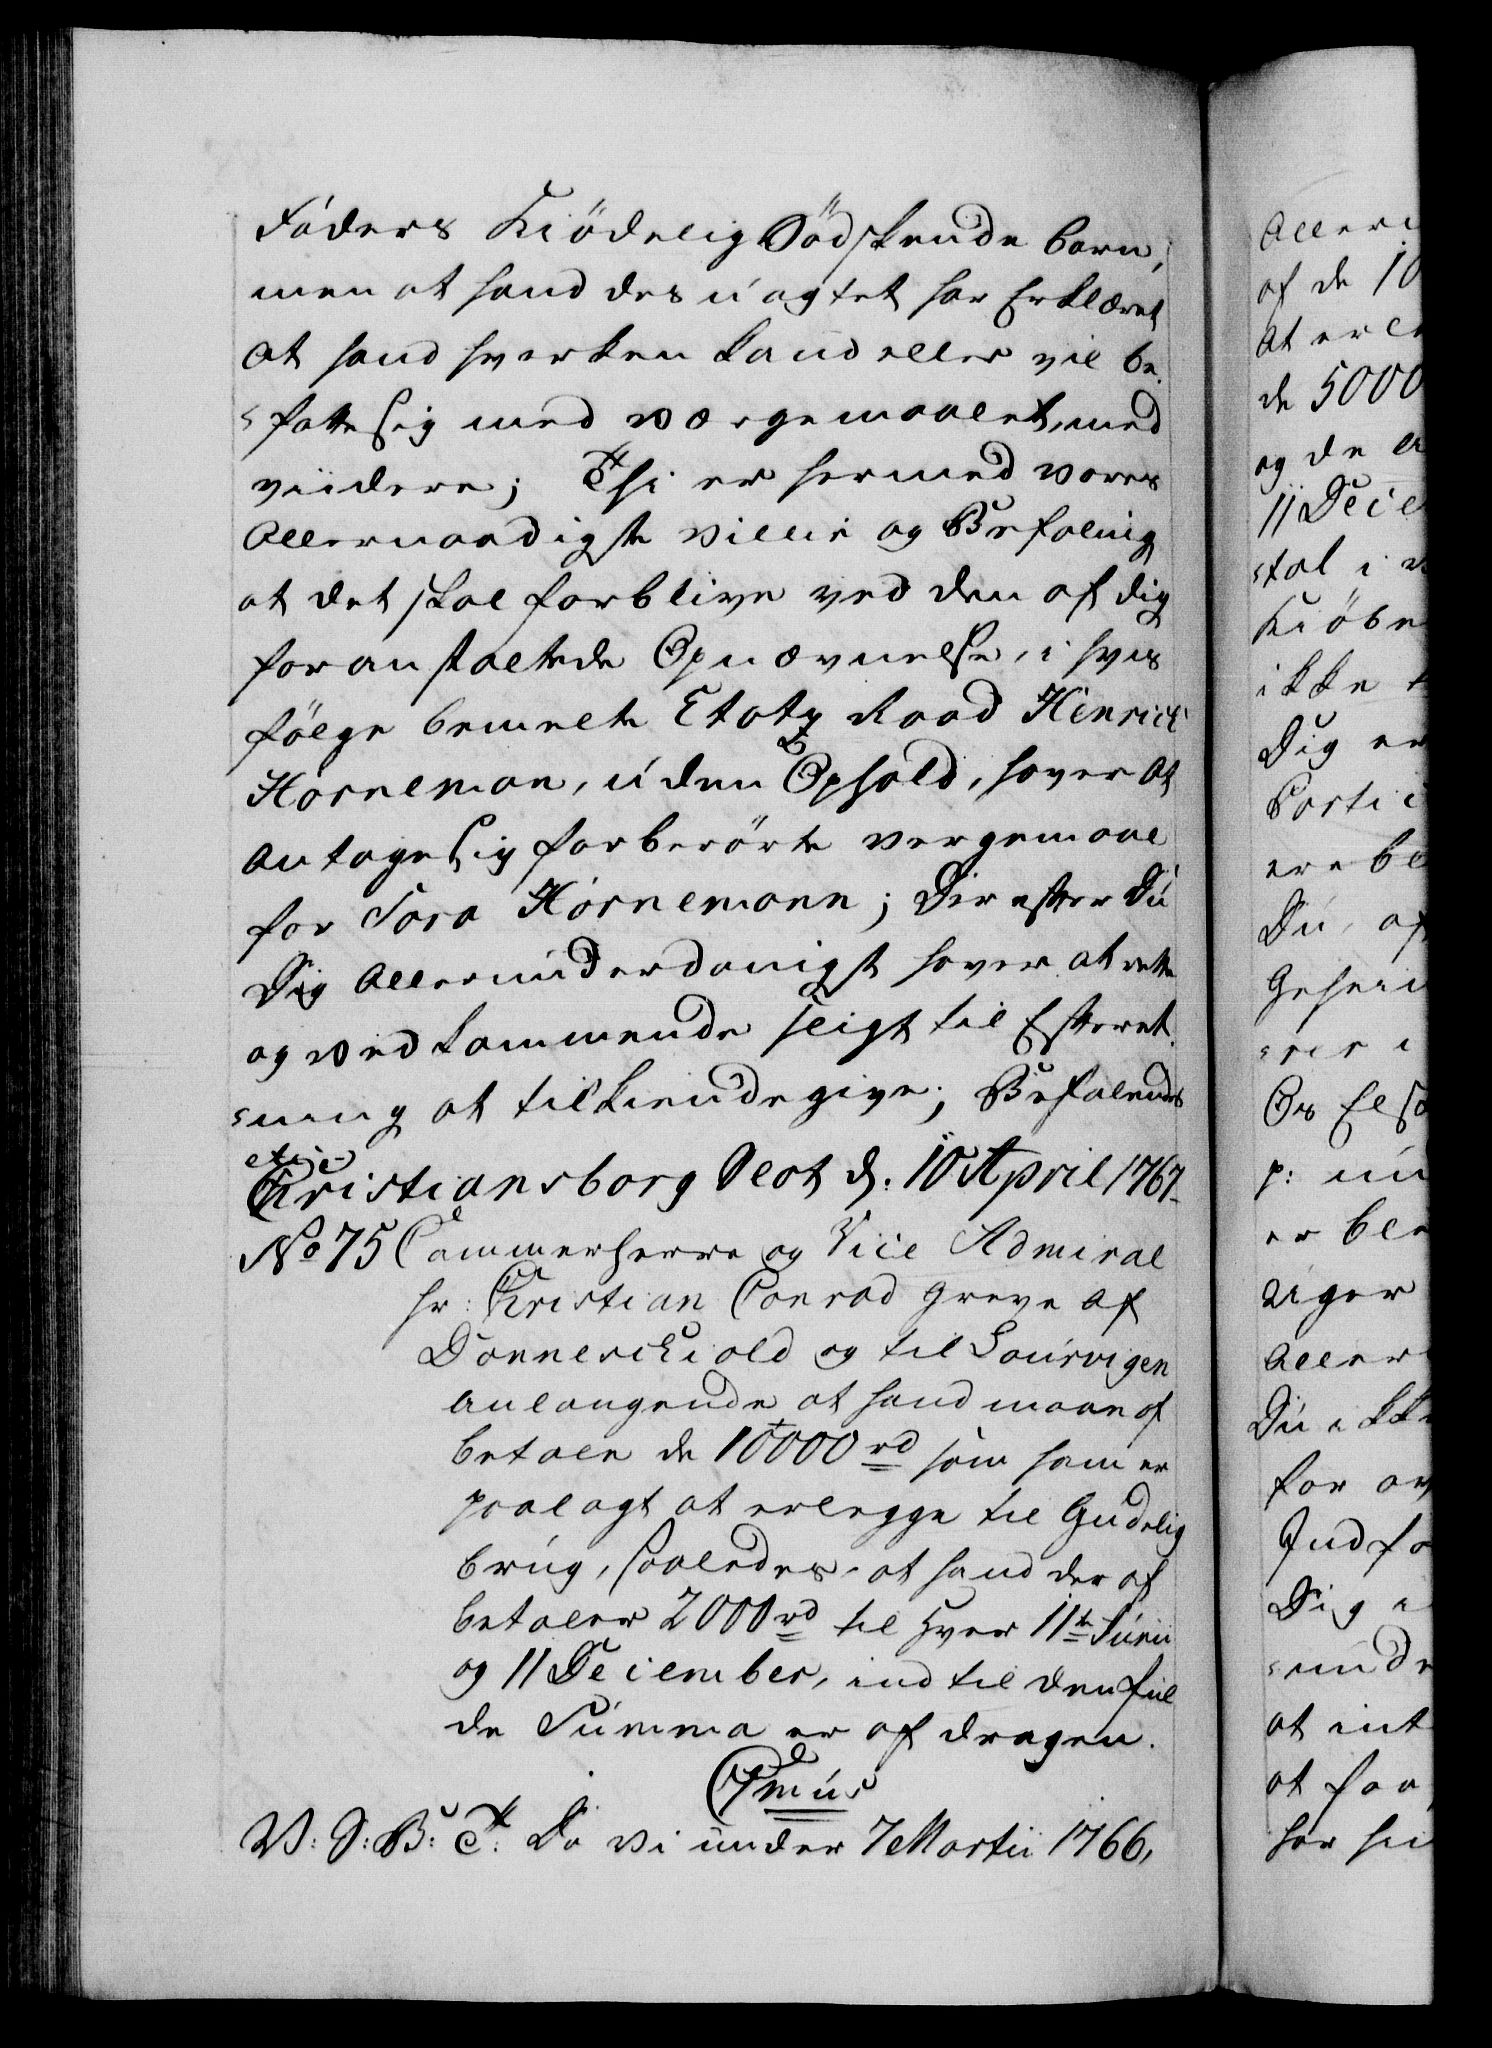 Faders Kiödelig Södskende barn,
men at hand des uagtet har Erklæret
at hand hverken kand eller vil be-
fatte sig med værgemaalet, med
viidere; Thi er hermed vores
Allernaadigste villie og Befaling
at det skal forblive ved den af dig
foranstaltede Opnævnelse, i hvis
fölge bemelte Etatz Raad Henrich
Horneman, uden Ophold, haver at
antage sig forberörte vergemaal
for Sara Hornemann; Derefter Du
Dig allerunderdanigst haver at rette
og vedkommende sligt til Efteret-
ning at tilkiendegive; Befalendes
etc:
Christiansborg Slot d: 10 April 1767
No 75 Cammerherre og Vice Admiral
hr: Christian Conrad Greve af
Danneschiold og til Laurvigen
anlangende at hand maae af
betale de 10000 rd som ham er
paalagt at erlegge til Gudelig
brug, saaledes, at hand der af
betaler 2000 rd til hver 11te Junii
og 11 December, indtil den ful
de Summa er afdragen.
V: G: B: T: Da vi under 7 Martii 1766,
Aller
af de 10
at erle
de 5000
og de
11 Dece
tal i
Kiöbe
ikke
Dig er
Parti
ere be
Du, af
Geheim
Os
p:
er ble
Aller
Du ikk
for
Indfo
Dig
at int
at faa
har